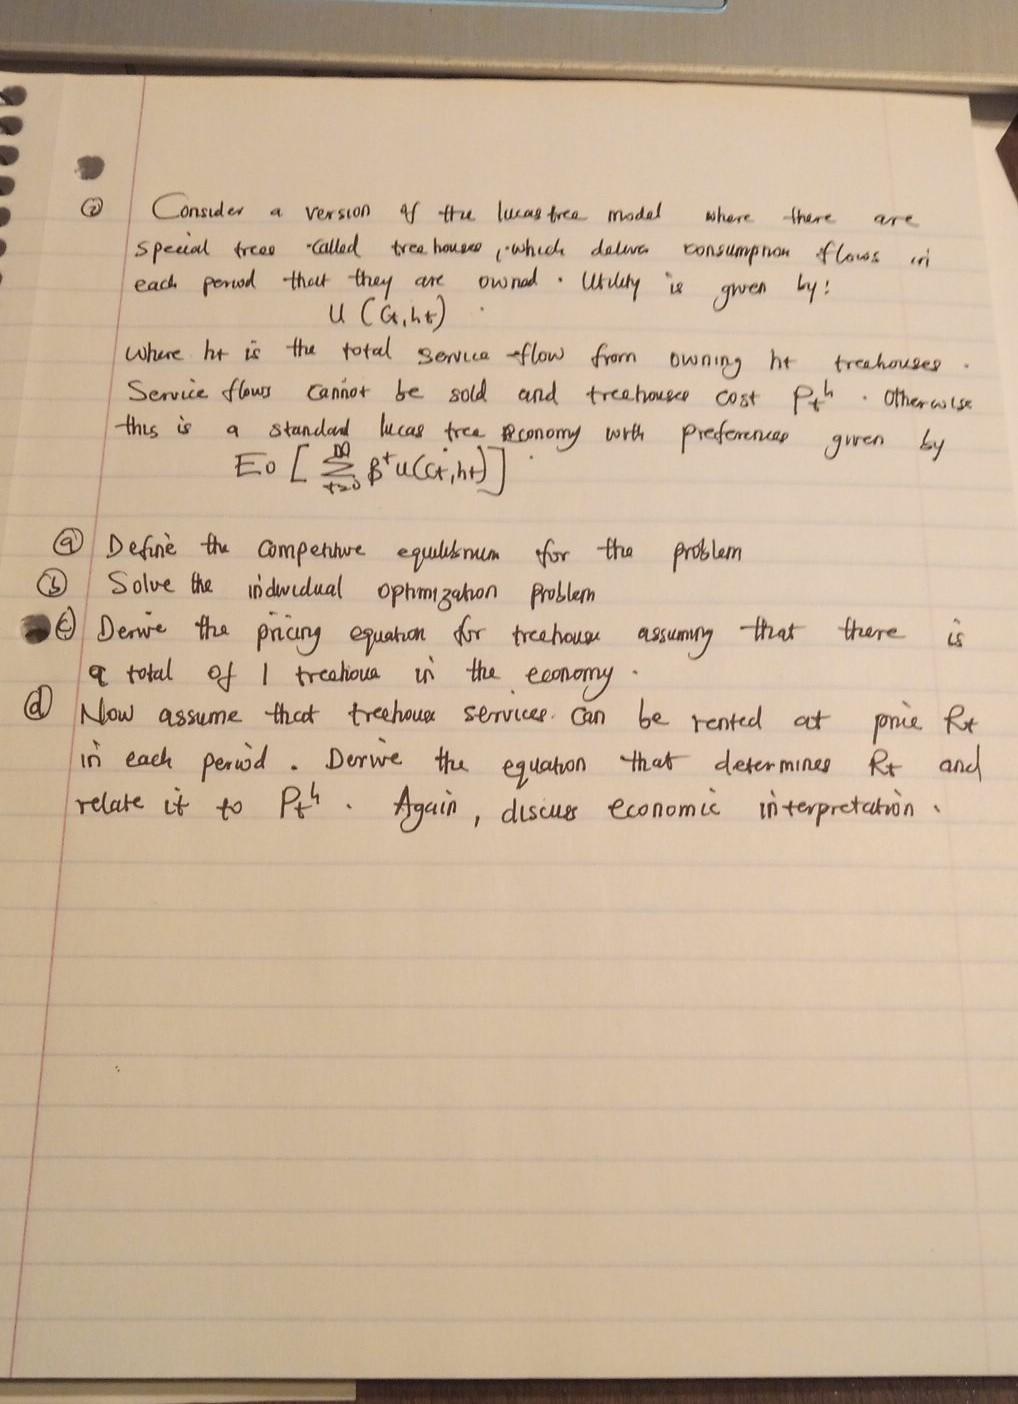 ② Consider a version of the lucas tree model where there are
special trees called treehouses, which deliver consumption flows in
each period that they are owned. Utility is given by:
U (Ct, ht).
Where ht is the total service flow from owning ht treehouses.
Service flows cannot be sold and treehouses cost Pt^h. Otherwise
this is a standard lucas tree economy with preferences given by
E0 [∑_{t=0}^{∞} β^t u(Ct, ht)].
ⓐ Define the competitive equilibrium for the problem
ⓑ Solve the individual optimization problem
ⓒ Derive the pricing equation for treehouse assuming that there is
a total of 1 treehouse in the economy.
ⓓ Now assume that treehouse services can be rented at price Rt
in each period. Derive the equation that determines Rt and
relate it to Pt^h. Again, discuss economic interpretation.